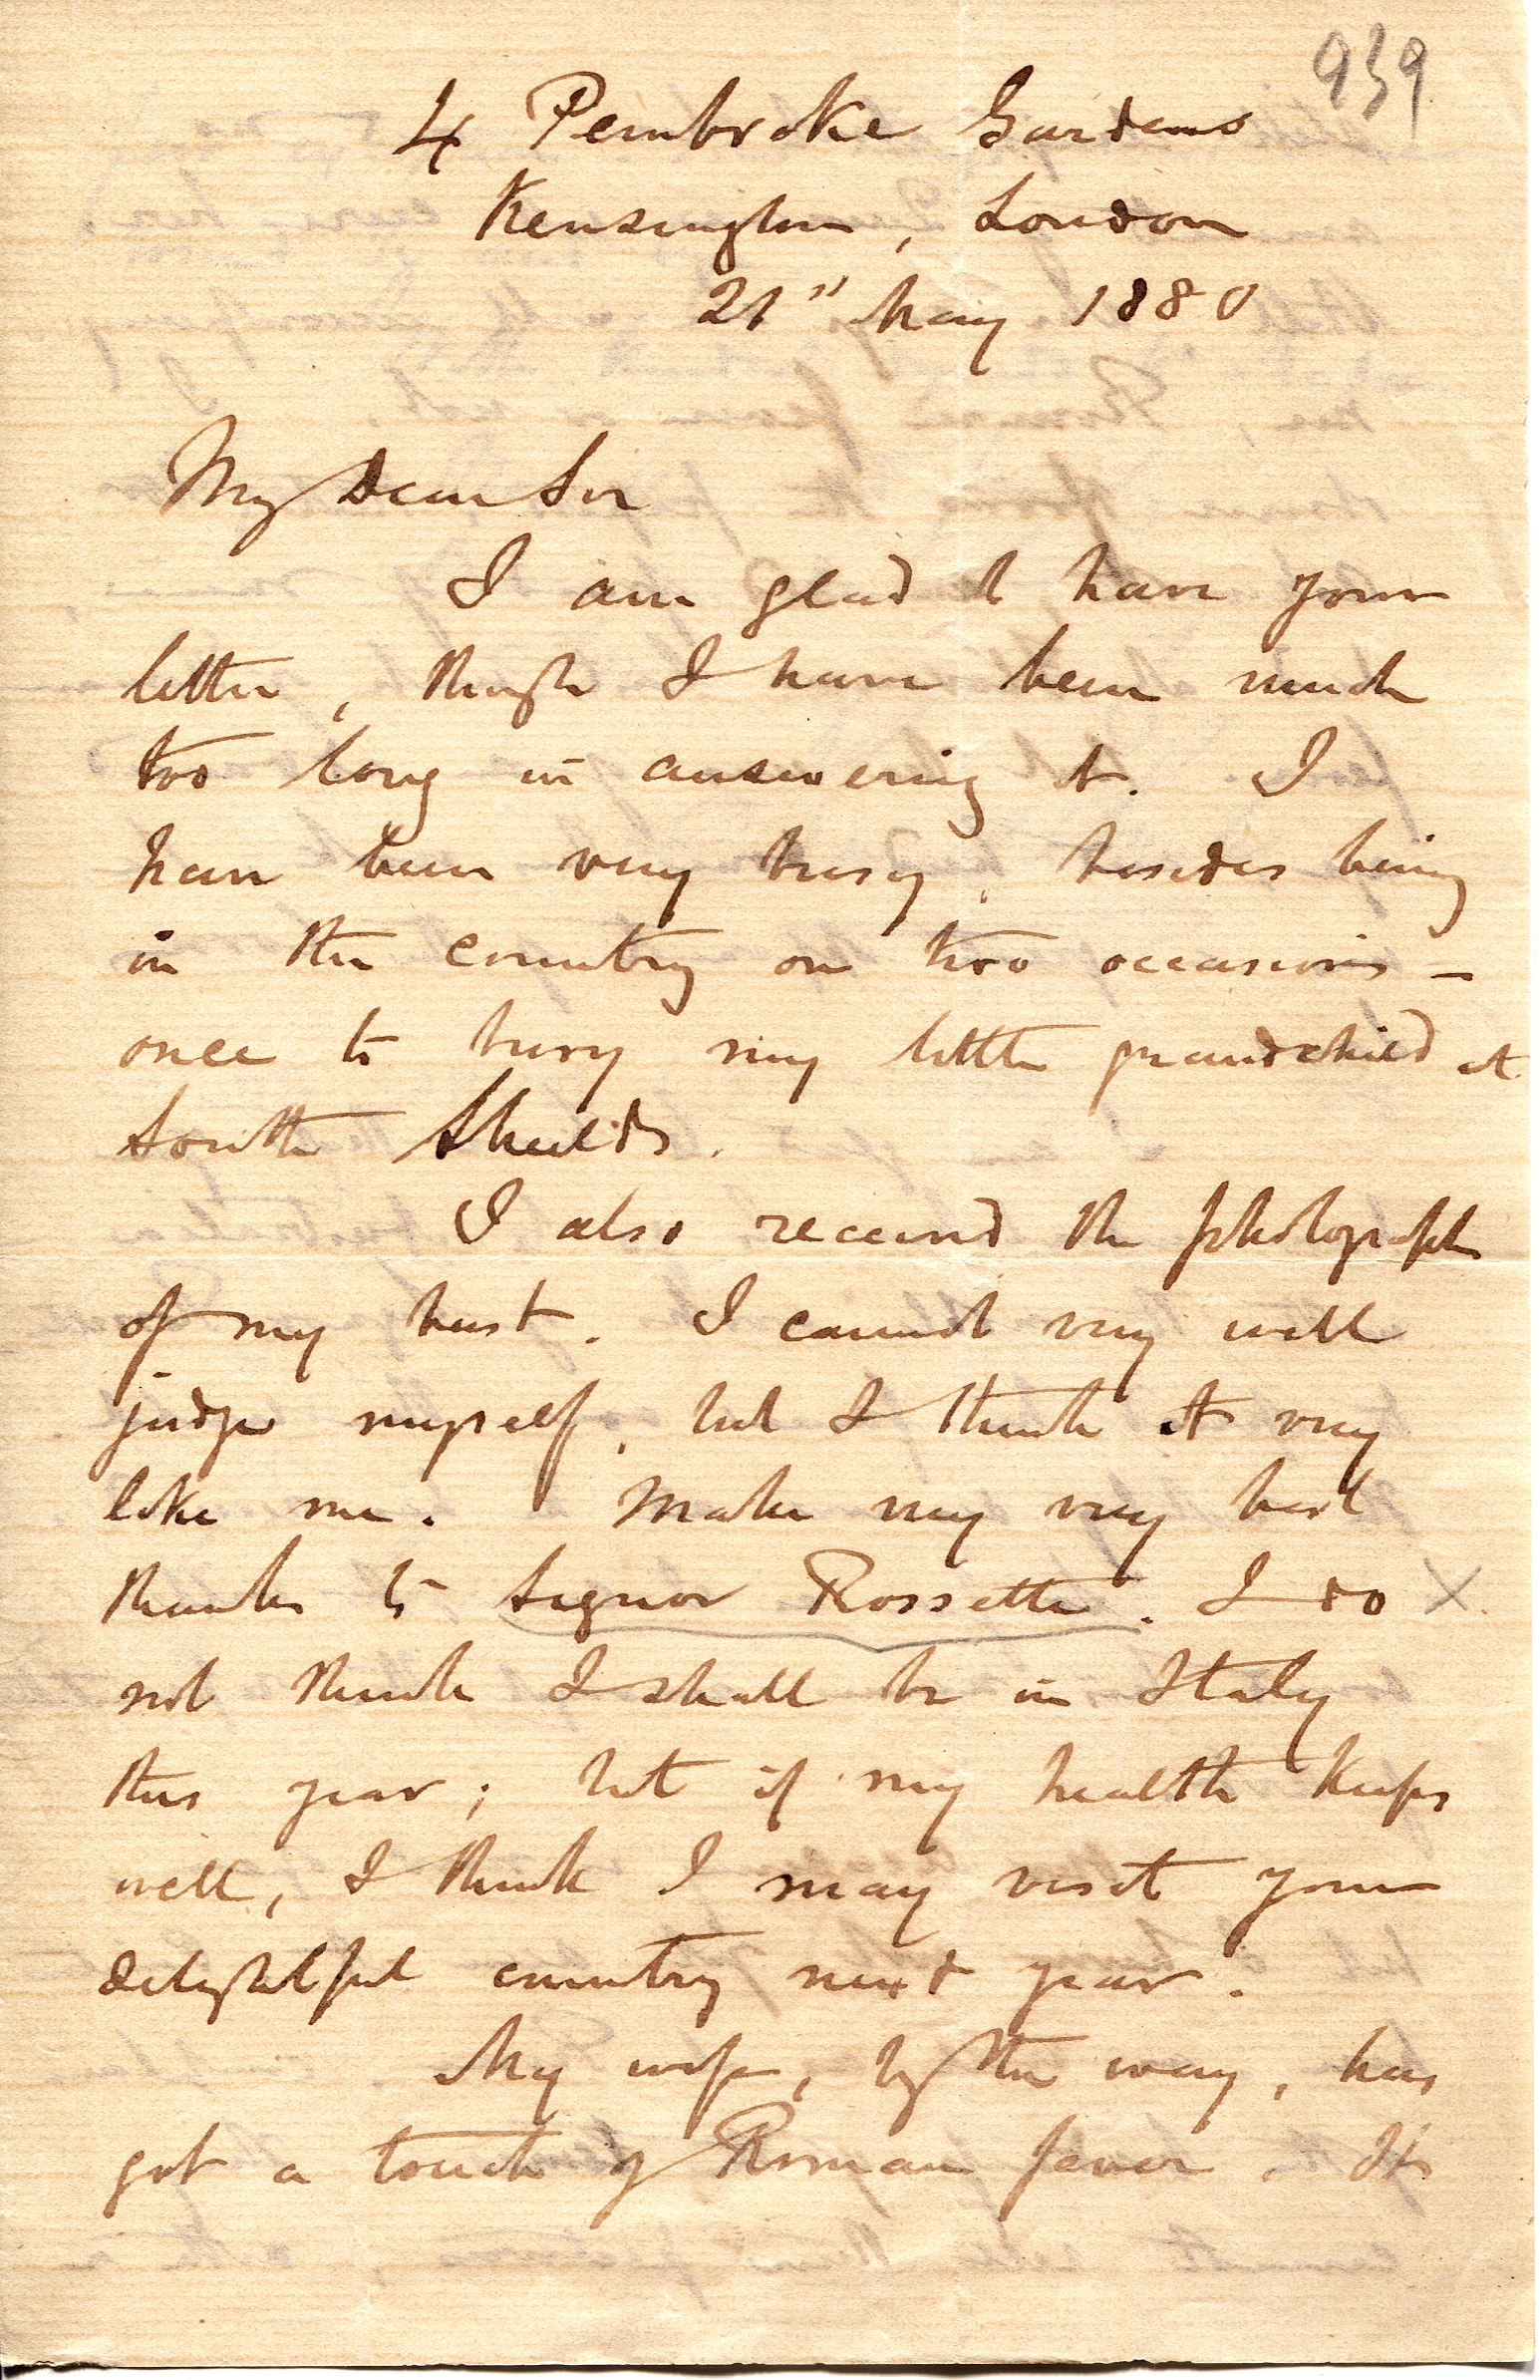 939
4 Pembroke Gardens
Kensington, London
21" May 1880
My Dear Sir
I am glad to have your
letter, though I have been much
too long in answering it. I
have been very busy, besides being
in the country on two occasions –
once to bury my little grandchild at
South Shields.
I also received the photograph
of my bust. I cannot very well
judge myself, but I think it very
like me. Make my very best
thanks to Signor Rossetti. I do X
not think I shall be in Italy
this year; but if my health keeps
well, I think I may visit your
delightful country next year.
My wife, by the way, has
got a touch of Roman fever. It